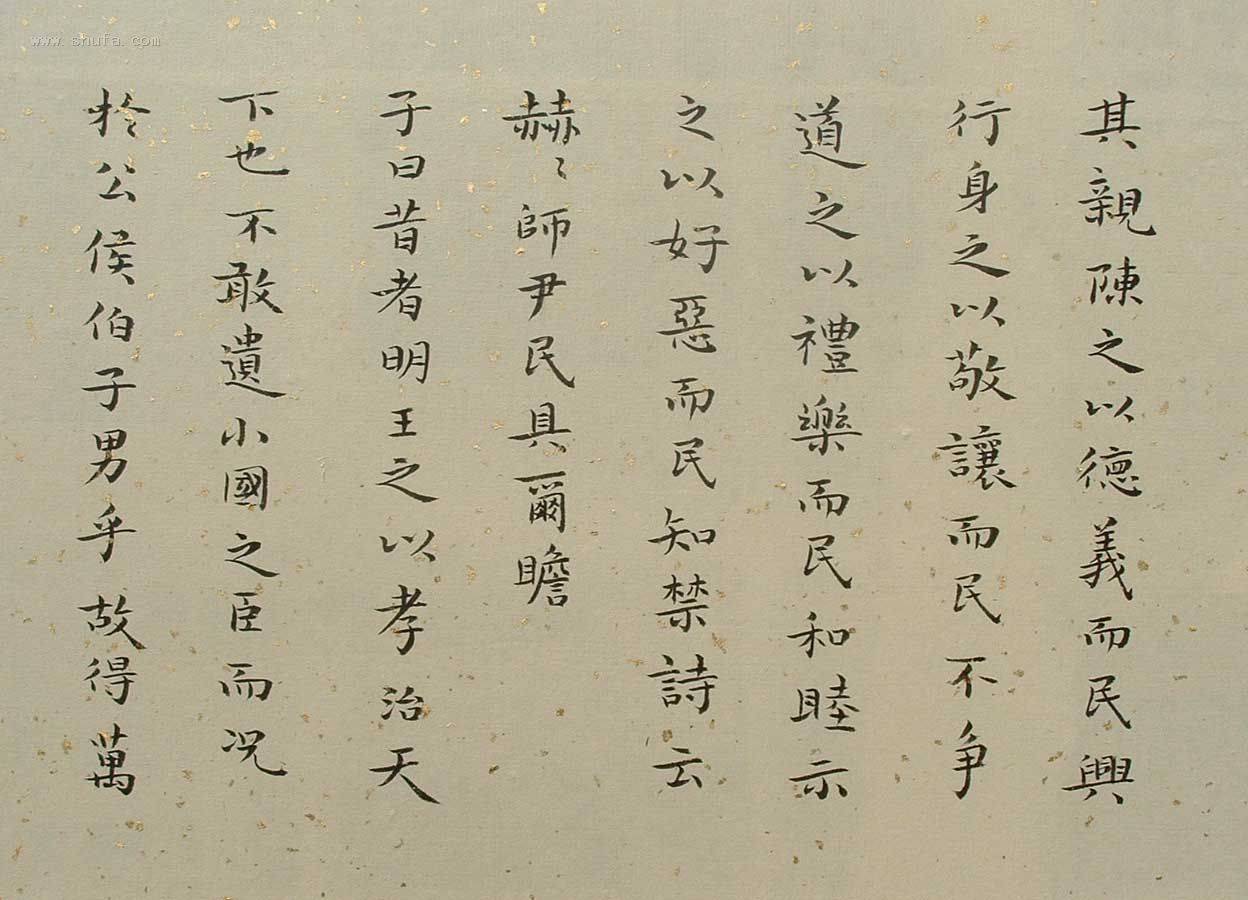 其親陳之以德義而民興
行身之以敬讓而民不争
道之以禮樂而民和睦示
之以好惡而民知禁詩云
赫〻師尹民具爾瞻
子曰昔者明王之以孝治天
下也不敢遺小國之臣而况
於公侯伯子男乎故得萬
www.shufa.com